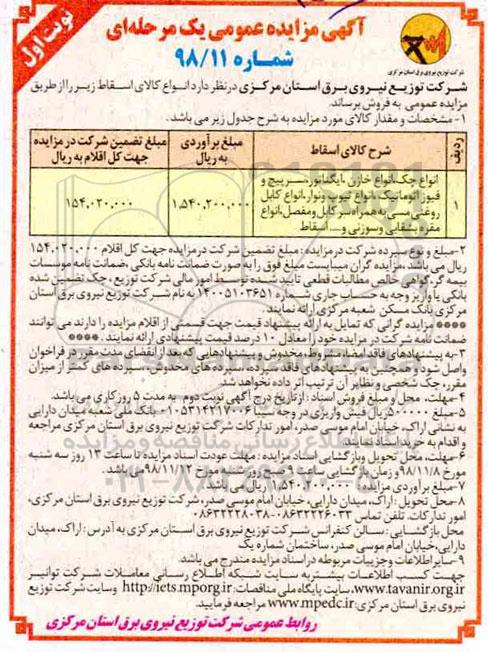 نوبت اول
آگهی مزایده عمومی یک مرحله‌ای
شماره ۹۸/۱۱
شرکت توزیع نیروی برق استان مرکزی
شرکت توزیع نیروی برق استان مرکزی در نظر دارد انواع کالای اسقاط زیر را از طریق
مزایده عمومی به فروش برساند.
۱- مشخصات و مقدار کالای مورد مزایده به شرح جدول زیر می باشد.
ردیف
شرح کالای اسقاط
مبلغ برآوردی به ریال
مبلغ تضمین شرکت در مزایده جهت کل اقلام به ریال
۱
انواع جک، انواع خازن، ایگناتور، سرپیچ و
فیوز اتوماتیک، انواع تیوپ ونوار، انواع کابل
روغنی مسی به همراه سرکابل و مفصل، انواع
مقره بشقابی و سوزنی و... اسقاط
۱,۵۴۰,۲۰۰,۰۰۰
۱۵۴,۰۲۰,۰۰۰
۲- مبلغ و نوع سپرده شرکت در مزایده: مبلغ تضمین شرکت در مزایده جهت کل اقلام ۱۵۴,۰۲۰,۰۰۰
ریال می باشد. مزایده گران میبایست مبلغ فوق را به صورت ضمانت نامه بانکی، ضمانت نامه موسسات
بیمه گر، گواهی خالص مطالبات قطعی تایید شده توسط امور مالی شرکت توزیع، چک تضمین شده
بانکی یا واریز وجه به حساب جاری شماره ۱۴۰۰۵۱۰۳۶۵۱ به نام شرکت توزیع نیروی برق استان
مرکزی بانک مسکن شعبه مرکزی ارائه نمایند.
**** مزایده گرانی که تمایل به ارائه پیشنهاد قیمت جهت قسمتی از اقلام مزایده را دارند می توانند
ضمانت نامه شرکت در مزایده خود را معادل ۱۰ درصد قیمت پیشنهادی ارائه نمایند. ****
۳- به پیشنهادهای فاقد امضاء، مشروط، مخدوش و پیشنهادهایی که بعد از انقضای مدت مقرر در فراخوان
واصل شود و همچنین به پیشنهادهای فاقد سپرده، سپرده های مخدوش، سپرده های کمتر از میزان
مقرر، چک شخصی و نظایر آن ترتیب اثر داده نخواهد شد.
۴- مهلت، محل و مبلغ فروش اسناد: از تاریخ درج آگهی نوبت دوم به مدت ۵ روز کاری می باشد.
۵- مبلغ ۵۰۰۰۰۰ ریال فیش واریزی در وجه سیبا ۰۱۰۵۳۱۴۲۱۷۰۰۶ بانک ملی شعبه میدان دارایی
به نشانی اراک، خیابان امام موسی صدر، امور تدارکات شرکت توزیع نیروی برق استان مرکزی مراجعه
و اقدام به خرید اسناد نمایند.
۶- مهلت، محل تحویل و بازگشایی اسناد مزایده: مهلت عودت اسناد مزایده تا ساعت ۱۳ روز سه شنبه
مورخ ۹۸/۱۱/۸ و زمان بازگشایی ساعت ۹ صبح روز شنبه مورخ ۹۸/۱۱/۱۲ می باشد.
۷- مبلغ برآوردی مزایده: ۱,۵۴۰,۲۰۰,۰۰۰ ریال می باشد.
۸- محل تحویل: اراک، میدان دارایی، خیابان امام موسی صدر، شرکت توزیع نیروی برق استان مرکزی،
امور تدارکات. تلفن تماس ۰۸۶۳۲۲۲۶۰۳۳-۰۸۶۳۲۲۲۸۰۳۸
محل بازگشایی: سالن کنفرانس شرکت توزیع نیروی برق استان مرکزی به آدرس: اراک، میدان
دارایی، خیابان امام موسی صدر، ساختمان شماره یک
۹- سایر اطلاعات و جزییات مربوطه در اسناد مزایده مندرج می باشد.
جهت کسب اطلاعات بیشتر به سایت شبکه اطلاع رسانی معاملات شرکت توانیر
www.tavanir.org.ir، سایت پایگاه ملی مناقصات: http://iets.mporg.ir وسایت شرکت توزیع
نیروی برق استان مرکزی: www.mpedc.ir مراجعه فرمایید.
روابط عمومی شرکت توزیع نیروی برق استان مرکزی